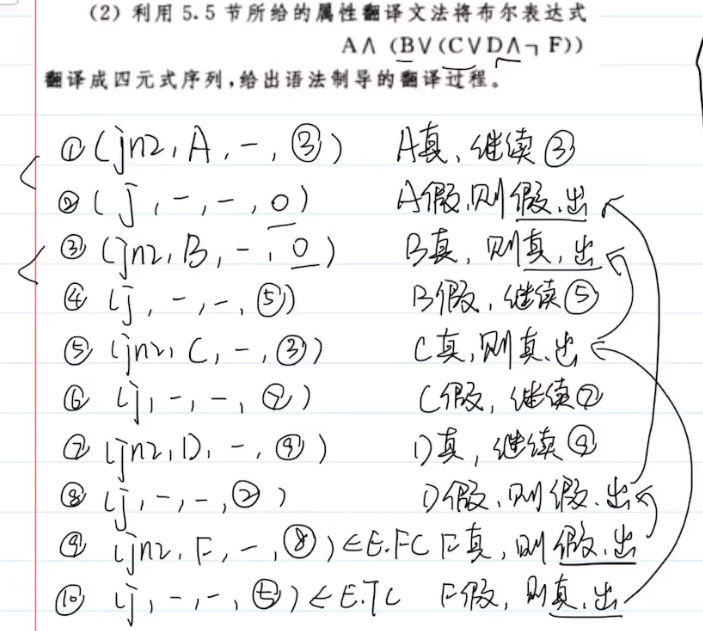 (2) 利用 5.5 节所给的属性翻译文法将布尔表达式
A∧ (B∨(C∨D∧¬ F))
翻译成四元式序列,给出语法制导的翻译过程。
① (jnz, A, -, ③) A真、继续③
② (j, -, -, 0) A假,则假、出
③ (jnz, B, -, 0) B真,则真,出
④ (j, -, -, ⑤) B假,继续⑤
⑤ (jnz, C, -, ③) C真,则真、出
⑥ (j, -, -, ⑦) C假,继续⑦
⑦ (jnz, D, -, ⑨) D真,继续⑨
⑧ (j, -, -, ②) D假、则假、出
⑨ (jnz, F, -, ⑧) ← E.FC F真,则假、出
⑩ (j, -, -, ⑤) ← E.TC F假,则真、出